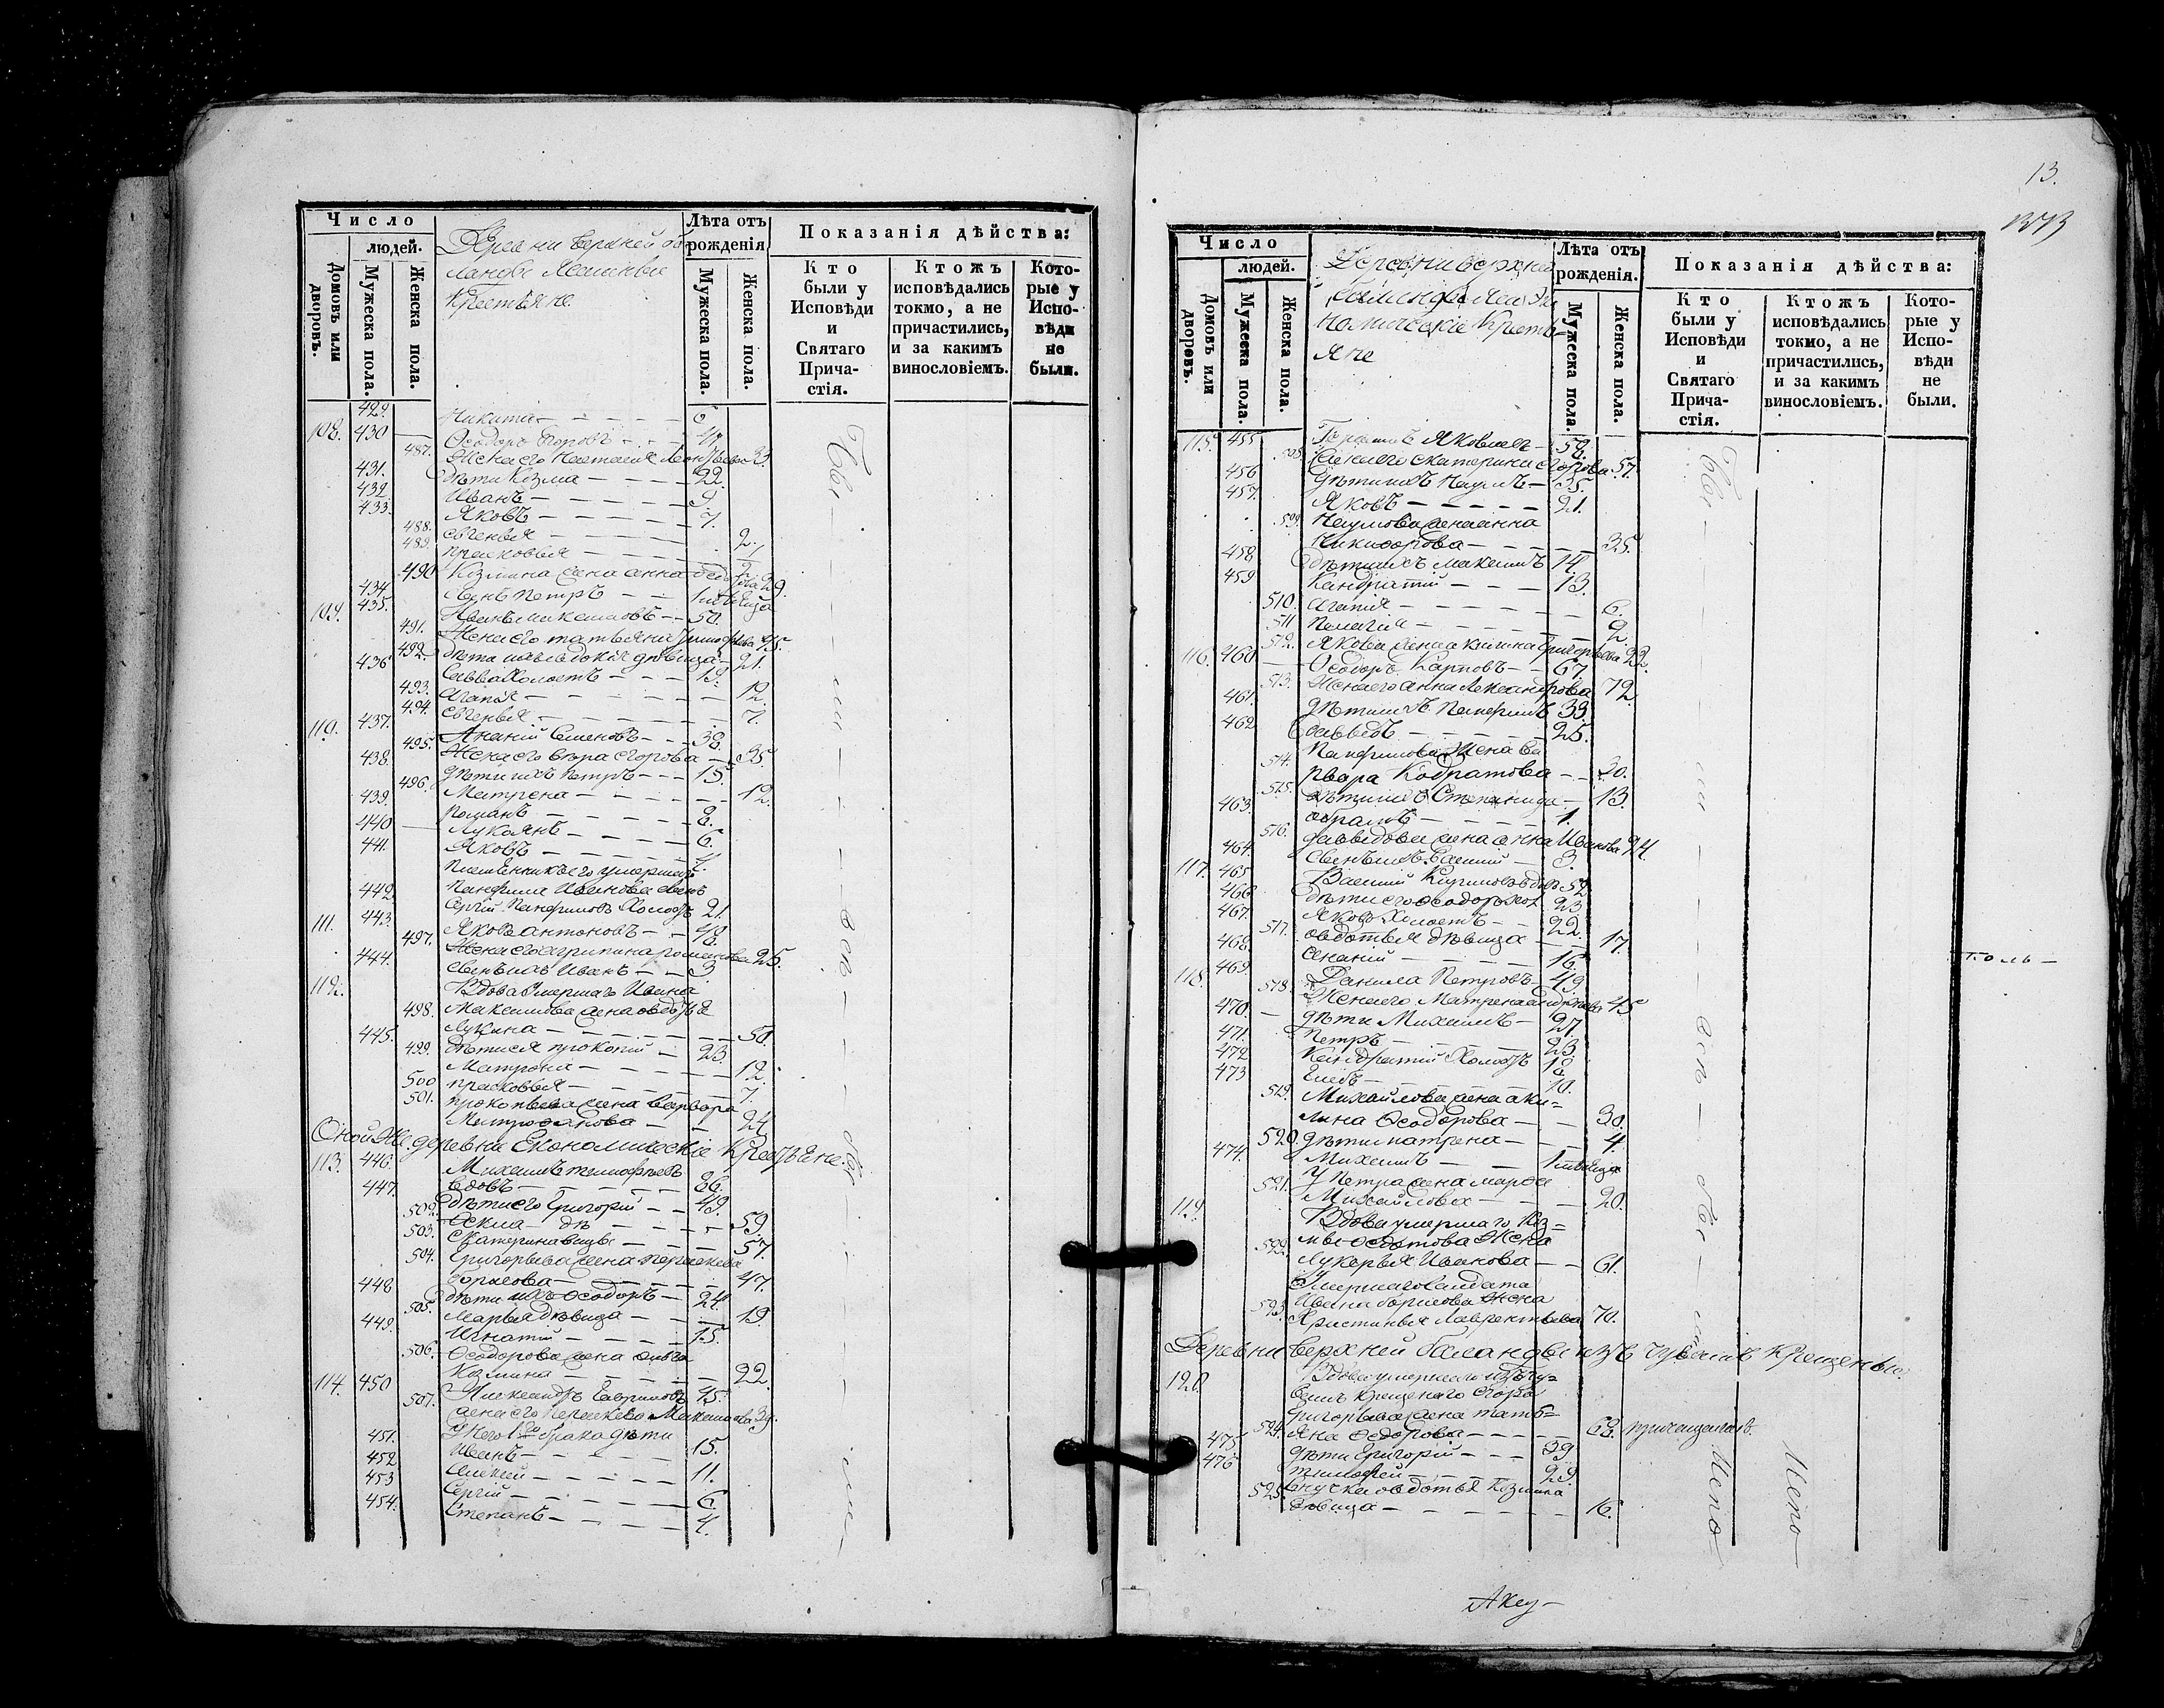 Число
людей.
Домовъ или дворовъ.
Мужеска пола.
Женска пола.
Деревни Верхней ба
ланды
Крестьяне
Лѣта отъ рожденія
Мужеска пола.
Женска пола.
Показанія дѣйства:
Кто были у Исповѣди и Святаго Прича-
стія.
Ктожъ исповѣдались токмо, а не причастились, и за какимъ винословіемъ.
Кото-
рые у Испо-
вѣди не были.
429. Никита 6
108. 430 Ѳеодоръ Егоровъ
487. Жена его Настасія
431. дѣти Козма 22.
432. Иванъ 9
433. Яковъ 7.
488. Евгенья 2.
489. Прасковья
490 Козмина жена Анна Ѳедорова 29.
434. Сынъ Петръ
109. 435. Иванъ Максимовъ 50.
491. Жена его татьяна Тимофѣева 45.
492. дѣти ихъ евдокія дѣвица 21.
436 Савва Холостъ 19.
493. Агапія 12.
494. Евгенья 7.
110. 437. Ананій Семеновъ 38.
495. Жена его вѣра егорова 35.
438. дѣти ихъ Петръ 15.
496. Матрена 12.
439. Романъ 8.
440 Лукоянъ 6.
441. Яковъ 4.
Племѣнникъ его умершаго
442. Панфила Иванова сынъ
Сергій Панфиловъ Холостъ 21.
111. 443. Яковъ антоновъ 48.
497. Жена его агрипина романова 25.
444. сынъ ихъ Иванъ 3
112. Вдова Умершаго Ивана
498. Максимова жена овдотья
Лукина 50.
445. дѣти ея прокопій 23.
499. Матрона 12.
500 прасковья 7.
501. прокопьева жена варвара
Митрофанова 24
Оной Же деревни Економическіе Крестьяне.
113. 446. Михаилъ тимофѣевъ
вдовъ 86.
447. дѣти его Григорій 49.
502. Ѳекла дѣ 59.
503. Екатерина вицы 57.
504. Григорьева жена параскева
борисова 47.
448 дѣти ихъ Ѳеодоръ 24.
505. Марья дѣвица 19
449. Игнатій 15.
506. Ѳеодорова жена
Козмина 22.
114. 450 Александръ Гавриловъ 45.
507. жена его Параскева Максимова 39.
У Него 1го брака дѣти
451. Иванъ 15.
452 Алексей 11.
453 Сергій 6
454. Степанъ 4.
Бы — — ли — — вси — — Бы — — ли —
13.
Число
людей.
Домовъ или дворовъ.
Мужеска пола.
Женска пола.
Деревни верхней
баланды Эко
номическіе Кресть-
яне
Лѣта отъ рожденія.
Мужеска пола.
Женска пола.
Показанія дѣйства:
Кто были у Исповѣди и Святаго Прича-
стія.
Ктожъ исповѣдались токмо, а не причастились, и за какимъ винословіемъ.
Кото-
рые у Испо-
вѣди не были.
115. 455 Герасимъ Яковлевъ 58.
508. Жена его екатерина егорова 57.
456 дѣти ихъ Наумъ 35.
457. Яковъ 21.
509. Наумова жена анна
Никифорова 35.
458 дѣти ихъ Максимъ 14.
459 Кандратій 13.
510. Агапія 6.
511 Пелагія 2
512. Якова жена акилина Григорьева 22.
116. 460 Ѳеодоръ Карповъ 67.
513. Жена его Анна Александрова 72.
461. дѣти ихъ Панфилъ 39.
462 Давыдъ 25.
514. Панфилова Жена ва
рвара Кодратова 30.
515. дѣти ихъ Степанида 13.
463. абрамъ 1.
516. давыдова жена анна Иванова 24.
464. сынъ ихъ Василій 3.
117. 465 Василій Кириловъ вдовъ 52
466 дѣти его Ѳеодоръ хол. 23
467. Яковъ Холостъ 22.
517. овдотья дѣвица 17.
468. Ананій 16.
118. 469. Данила Петровъ 49.
518. Жена его Матрена 45
470. дѣти Михаилъ 27.
471. Петръ 23.
472 Кандратій Холостъ 18
473 Глебъ 10.
519. Михайлова жена аки=
лина Ѳеодорова 30.
520. дѣти матрена 4.
474. Михаилъ
521. У Петра жена марѳа
Михайлова 20.
119. Вдова умершаго Коз=
522. мы Ѳедотова Жена
Лукерья Иванова 61.
Умершаго Салдата
Ивана борисова Жена
523. Христинья Лаврентьева 70.
Деревни верхней баланды изъ чувашъ Крещеныхъ
120. Вдова умершаго изъ чу=
вашъ крещенаго егора
Григорьева жена тать=
524. яна Ѳедорова 68. причащалась.
475. дѣти Григорій 39
476 тимофей 29
525. внучка овдотья Козмина
дѣвица 16.
Бы — — ли — — вси — — Бы — — ли
толь —
Аку —